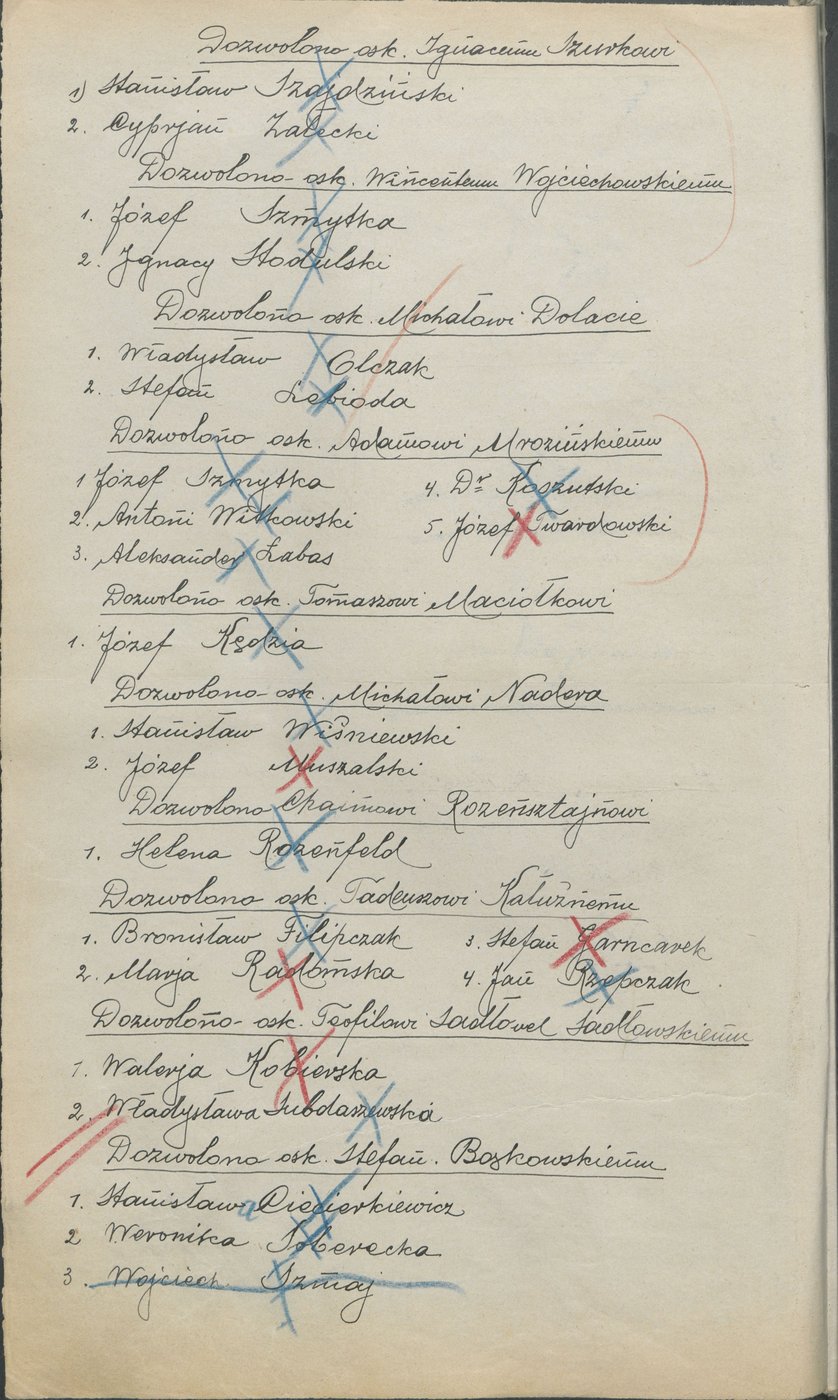 Dozwolono osk. Ignacemu Szurkowi
1) Stanisław Szajdziński
2. Cyprjan Załecki
Dozwolono osk. Wincentemu Wojciechowskiemu
1. Józef Szmytka
2. Ignacy Stodulski
Dozwolono osk. Michałowi Dolacie
1. Władysław Olczak
2. Stefan Łebioda
Dozwolono osk. Adamowi Mrozińskiemu
1 Józef Szmytka
2. Antoni Witkowski
3. Aleksander Łabas
4. Dr Koszutski
5. Józef Twardowski
Dozwolono osk. Tomaszowi Maciołkowi
1. Józef Kędzia
Dozwolono osk. Michałowi Nadera
1. Stanisław Wiśniewski
2. Józef Muszalski
Dozwolono Chaimowi Rozensztajnowi
1. Helena Rozenfeld
Dozwolono osk. Tadeuszowi Kałużnemu
1. Bronisław Filipczak
2. Marja Radomska
3. Stefan Garncarek
4. Jan Rzepczak
Dozwolono osk. Teofilowi Sadłowskiemu
1. Walerja Kobierska
2. Władysława Subdaszewska
Dozwolono osk. Stefan. Bozkowskiemu
1. Stanisław Ciecierkiewicz
2 Weronika Soberecka
3. Wojciech Szmaj